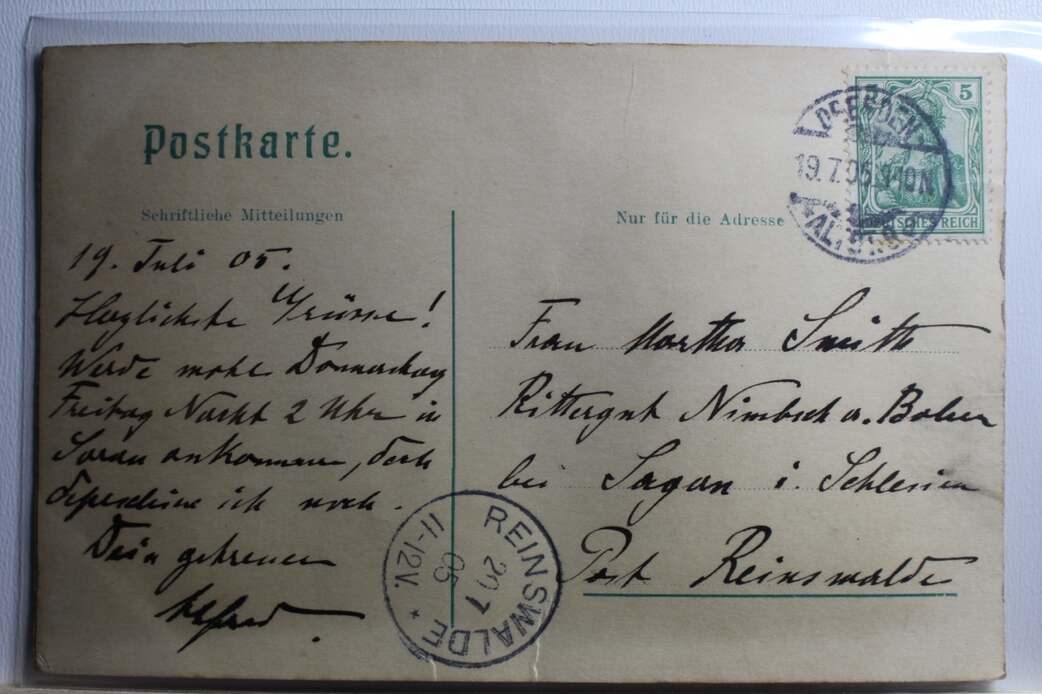 Postkarte.
Schriftliche Mitteilungen
Nur für die Adresse
5
DEUTSCHES REICH
DRESDEN
19.7.05.
ALTST.
19. Juli 05.
Herzlichste Grüsse!
Werde Donnerstag
Freitag Nacht 2 Uhr in
Sorau ankommen, doch
depeschiere ich noch.
Dein getreuer
Alfred.
Frau Martha Smith
Rittergut Nimbsch a. Bober
bei Sagan i. Schlesien
Post Reinswalde
REINSWALDE
20 7
05
11-12V.